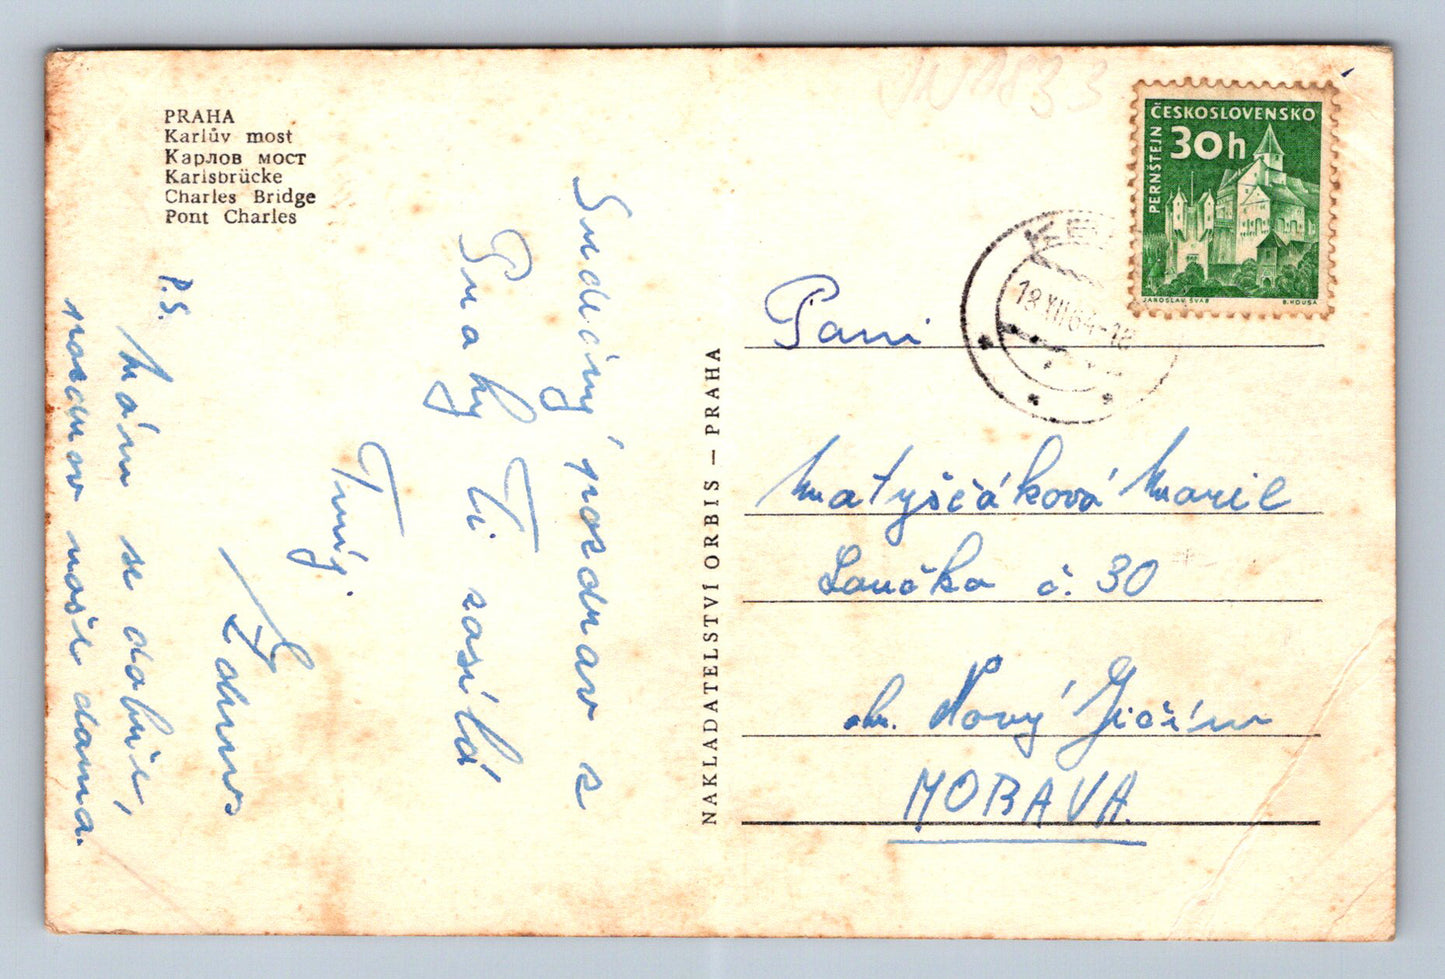 PRAHA
Karlův most
Карлов мост
Karlsbrücke
Charles Bridge
Pont Charles
Srdečný pozdrav z
Prahy Ti zasílá
Tvůj
P.S. Mám se dobře,
pozdrav naše doma.
NAKLADATELSTVÍ ORBIS — PRAHA
ČESKOSLOVENSKO
30h
PERNŠTEJN
JAROSLAV ŠVAB
B. HOUSA
18.XII.64-18
Paní
Matyščáková Marie
Loučka č. 30
okr. Nový Jičín
MORAVA